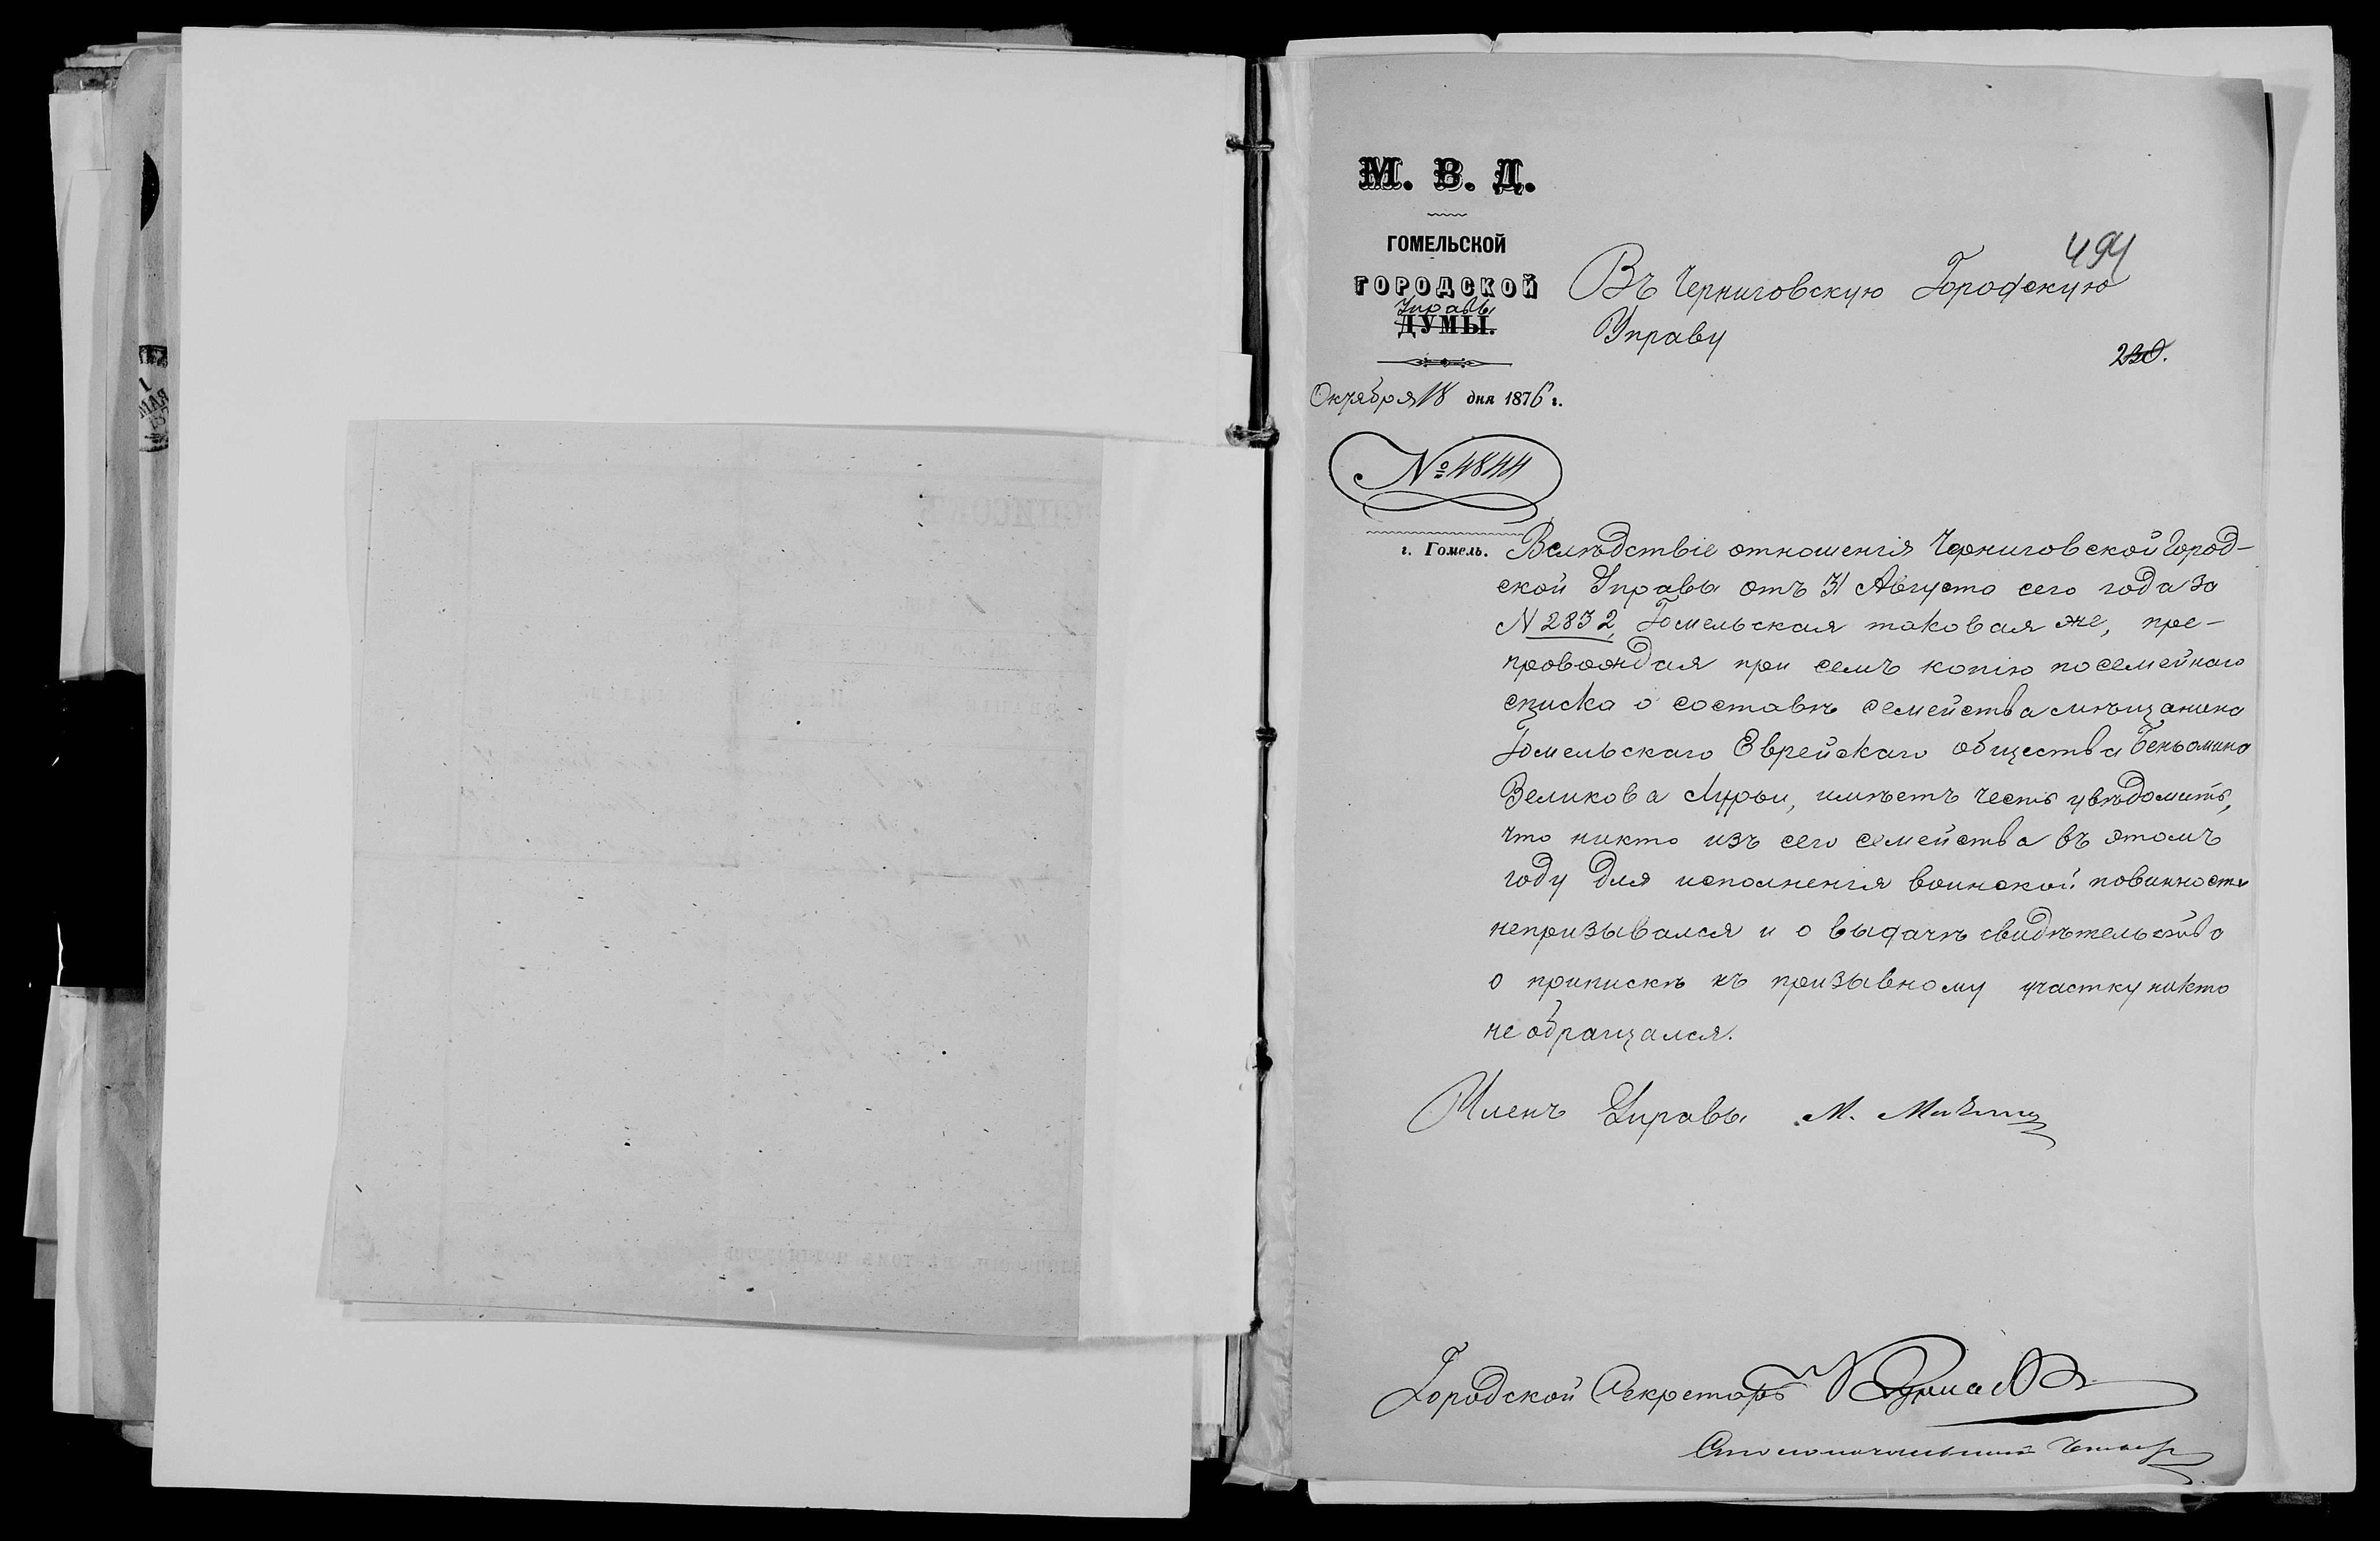 М. В. Д.
ГОМЕЛЬСКОЙ
ГОРОДСКОЙ
Управы
ДУМЫ.
Октября 18 дня 1876 г.
№ 4844
г. Гомель.
494
Въ Черниговскую Городскую
Управу
230.
Вслѣдствіе отношенія Черниговской Город-
ской Управы отъ 31 Августа сего года за
N 2832, Гомельская таковая же, пре-
провождая при семъ копію посемейнаго
списка о составѣ семейства мѣщанина
Гомельскаго Еврейскаго общества Беньомина
Великова Лурьи, имѣетъ честь увѣдомить,
что никто изъ сего семейства въ этомъ
году для исполненія воинской повинности
непризывался и о выдачѣ свидѣтельства
о припискѣ къ призывному участку никто
не обращался.
Членъ Управы М.
Городской Секретарь
Столоначальникъ
СПИСОКЪ